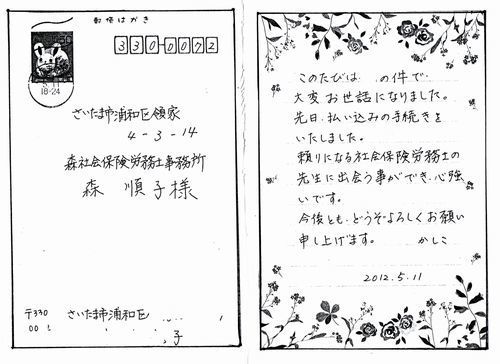 郵便はがき
330-0072
50
5.11
18-24
さいたま市浦和区領家
4-3-14
森社会保険労務士事務所
森 順子様
〒330
00
さいたま市浦和区
子
このたびは、 の件で、
大変お世話になりました。
先日、払い込みの手続きを
いたしました。
頼りになる社会保険労務士の
先生に出会う事ができ、心強
いです。
今後とも、どうぞよろしくお願い
申し上げます。 かしこ
2012.5.11